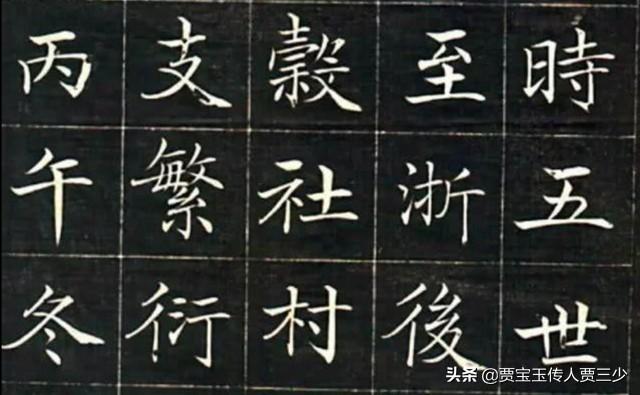 時五世
至浙後
穀社村
支繁衍
丙午冬
头条 @贾宝玉传人贾三少